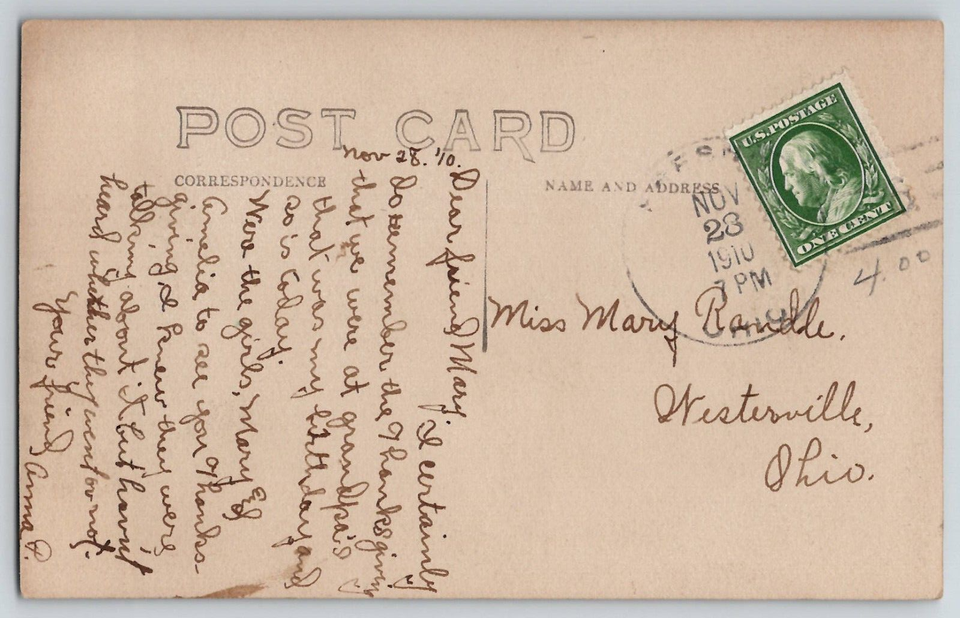 POST CARD
CORRESPONDENCE
NAME AND ADDRESS
Nov 28. '10.
Dear friend Mary, I certainly
do remember the Thanksgiving
that we were at grandpa's
that was my birthday and
so is today.
Were the girls, Mary Ed
Amelia to see you Thanks-
giving, I knew they were
talking about it but havn't
heard whether they went or not.
Your friend
Anna P.
U.S. POSTAGE
ONE CENT
NOV
28
1910
7 PM
OHIO
4.00
Miss Mary Randle.
Westerville,
Ohio.